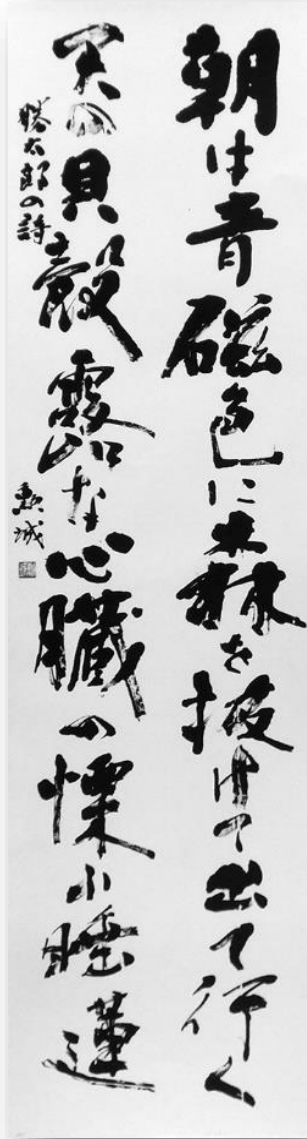 朝は青磁色に森を抜けて出て行く
天の貝殻露な心臓の慄ふ睡蓮
勝太郎の詩